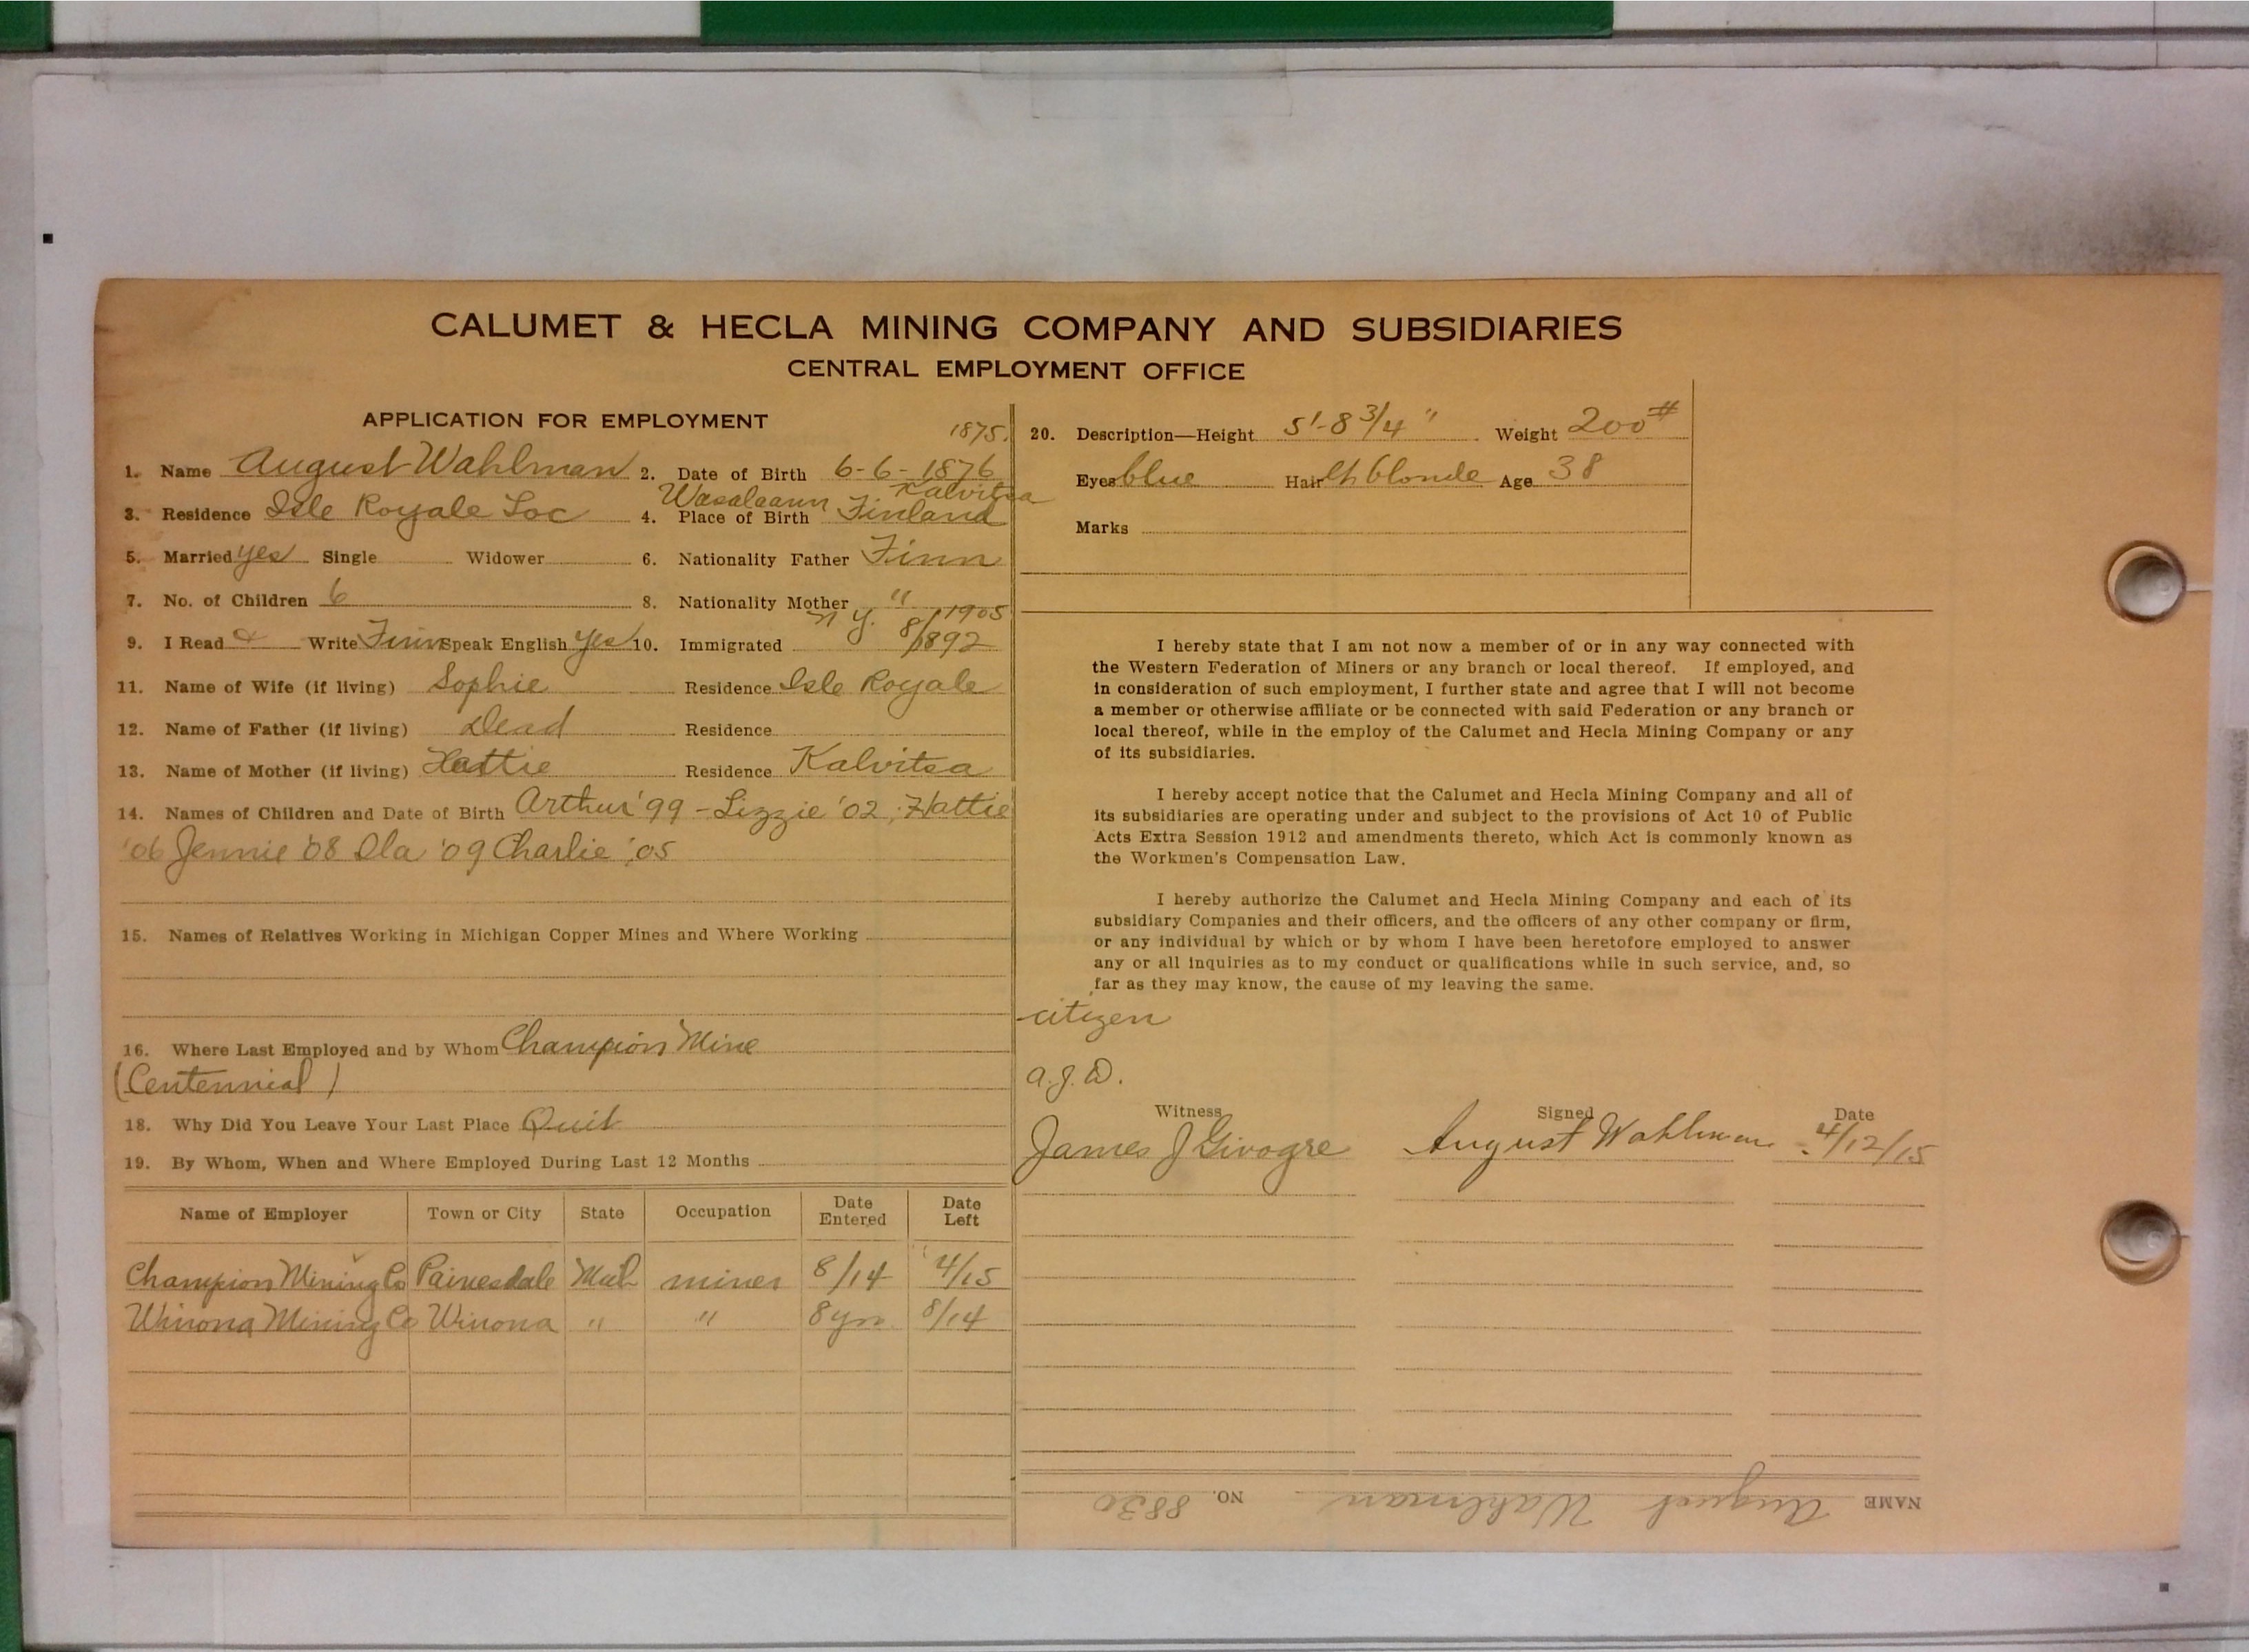 CALUMET & HECLA MINING COMPANY AND SUBSIDIARIES
CENTRAL EMPLOYMENT OFFICE
APPLICATION FOR EMPLOYMENT
1875.
1. Name August Wahlman 2. Date of Birth 6-6-1876
Kalvitsa
3. Residence Isle Royale Loc 4. Place of Birth Finland
5. Married yes Single Widower 6. Nationality Father Finn
7. No. of Children 6 8. Nationality Mother "
N Y. 8/1905
9. I Read & Write Finn Speak English yes 10. Immigrated 1892
11. Name of Wife (if living) Sophie Residence Isle Royale
12. Name of Father (if living) Dead Residence
13. Name of Mother (if living) Hattie Residence Kalvitsa
14. Names of Children and Date of Birth Arthur '99 - Lizzie '02, Hattie
'06 Jennie '08 Ida '09 Charlie '05
15. Names of Relatives Working in Michigan Copper Mines and Where Working
16. Where Last Employed and by Whom Champion Mine
(Centennial)
18. Why Did You Leave Your Last Place Quit
19. By Whom, When and Where Employed During Last 12 Months
Name of Employer Town or City State Occupation Date Entered Date Left
Champion Mining Co Painesdale Mich miner 8/14 4/15
Winona Mining Co Winona " " 8 yrs. 8/14
20. Description—Height 5'-8 3/4" Weight 200#
Eyes blue Hair lt blonde Age 38
Marks
I hereby state that I am not now a member of or in any way connected with
the Western Federation of Miners or any branch or local thereof. If employed, and
in consideration of such employment, I further state and agree that I will not become
a member or otherwise affiliate or be connected with said Federation or any branch or
local thereof, while in the employ of the Calumet and Hecla Mining Company or any
of its subsidiaries.
I hereby accept notice that the Calumet and Hecla Mining Company and all of
its subsidiaries are operating under and subject to the provisions of Act 10 of Public
Acts Extra Session 1912 and amendments thereto, which Act is commonly known as
the Workmen's Compensation Law.
I hereby authorize the Calumet and Hecla Mining Company and each of its
subsidiary Companies and their officers, and the officers of any other company or firm,
or any individual by which or by whom I have been heretofore employed to answer
any or all inquiries as to my conduct or qualifications while in such service, and, so
far as they may know, the cause of my leaving the same.
citizen
a.J.D.
Witness Signed Date
James J Givogre August Wahlman 4/12/15
NAME August Wahlman NO. 8830